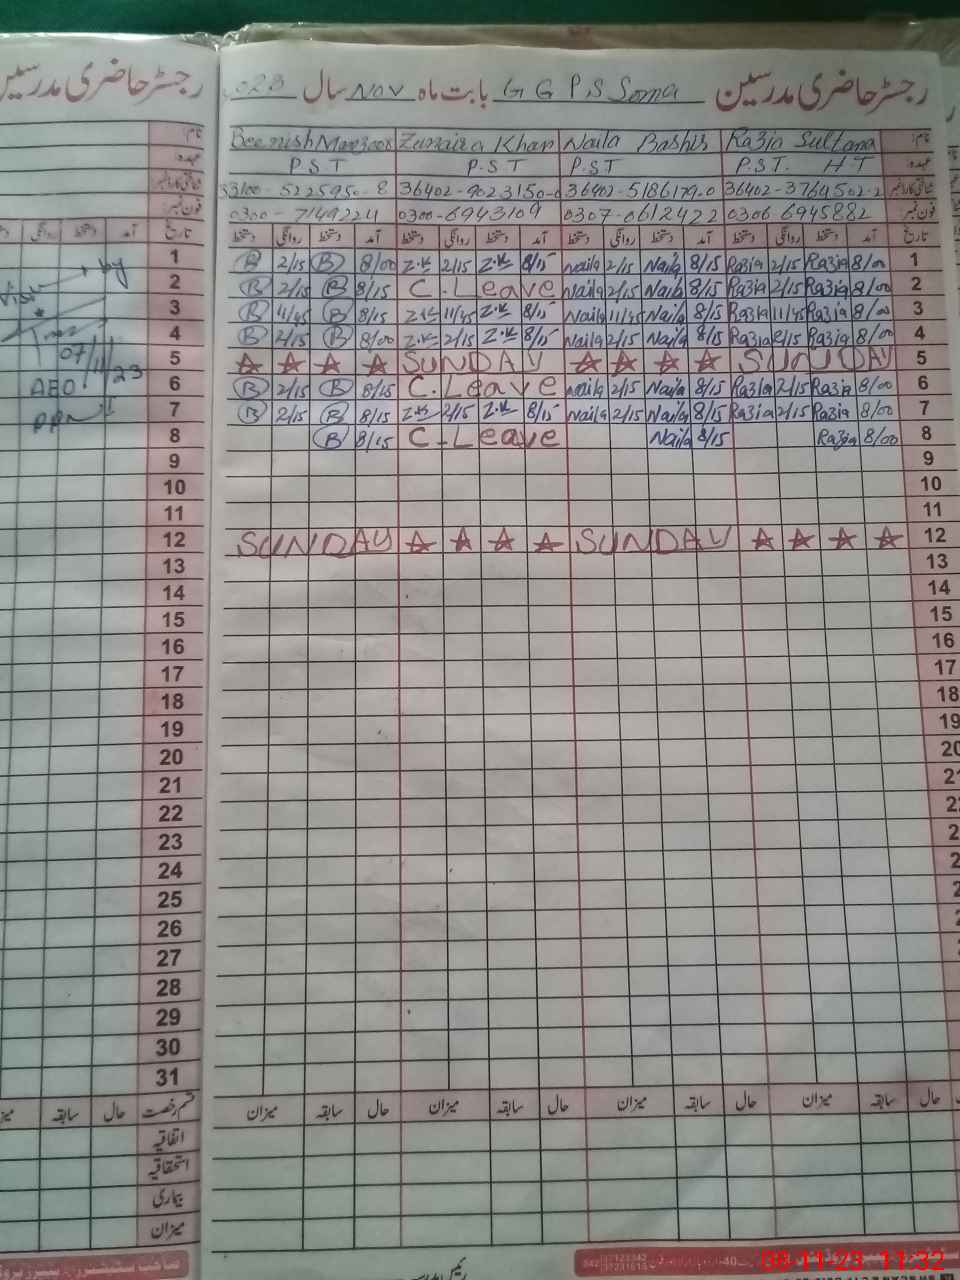 رجسٹر حاضری مدرسین G G P.S Soma بابت ماہ Nov سال 023
نام: Razia Sultana Naila Bashir Zunaira Khan Beenish Manzoor
عہدہ: P.S.T. H T P.S.T P.S.T P.S.T
شناختی کارڈ نمبر 36402-3764502-2 36402-5186179-0 36402-9023150- 33100-5225950-8
فون نمبر: 0306 6945882 0307-0612422 0300-6943109 0300-7149224
تاریخ آمد دستخط روانگی دستخط آمد دستخط روانگی دستخط آمد دستخط روانگی دستخط آمد دستخط روانگی دستخط
1 8/00 Razia 2/15 Razia 8/15 Naila 2/15 Naila 8/15 Z.K 2/15 Z.K 8/00 B 2/15 B
2 8/00 Razia 2/15 Razia 8/15 Naila 2/15 Naila C.Leave 8/15 B 2/15 B
3 8/00 Razia 11/45 Razia 8/15 Naila 11/45 Naila 8/15 Z.K 11/45 Z.K 8/15 B 11/45 B
4 8/00 Razia 2/15 Razia 8/15 Naila 2/15 Naila 8/15 Z.K 2/15 Z.K 8/00 B 2/15 B
5 SUNDAY SUNDAY
6 8/00 Razia 2/15 Razia 8/15 Naila 2/15 Naila C.Leave 8/15 B 2/15 B
7 8/00 Razia 2/15 Razia 8/15 Naila 2/15 Naila 8/15 Z.K 2/15 Z.K 8/15 B 2/15 B
8 8/00 Razia 8/15 Naila C.Leave 8/15 B
9
10
11
12 SUNDAY SUNDAY
13
14
15
16
17
18
19
20
21
22
23
24
25
26
27
28
29
30
31
حال سابقہ میزان حال سابقہ میزان حال سابقہ میزان حال سابقہ میزان
رجسٹر حاضری مدرسین
نام:
عہدہ:
شناختی کارڈ نمبر
فون نمبر:
تاریخ آمد دستخط روانگی
Visit by
07/11/23
AEO
قسم رخصت حال سابقہ میزان
اتفاقیہ
استحقاقیہ
بیماری
میزان
08-11-23 11:32